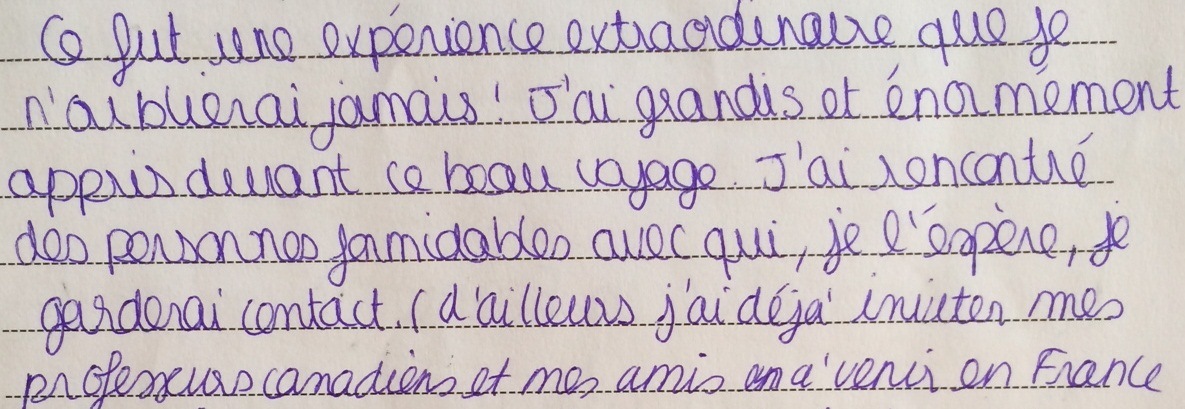 Ce fut une expérience extraordinaire que je
n'oublierai jamais! J'ai grandis et énormément
appris durant ce beau voyage. J'ai rencontré
des personnes formidables avec qui, je l'espère, je
garderai contact. (d'ailleurs j'ai déjà inviter mes
professeurs canadiens et mes amis à venir en France